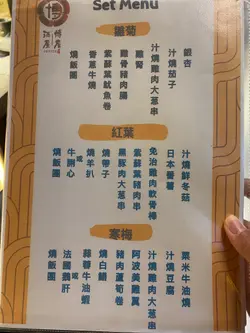 博多
酒屋
Set Menu
雛菊
銀杏
汁燒茄子
汁燒雞肉大葱串
雞腎
雞骨豬肉腸
紫蘇葉魷魚卷
香蔥牛燒
燒飯團
紅葉
汁燒鮮冬菇
日本蕃薯
免治雞肉軟骨棒
紫蘇葉豬肉串
黑豚肉大葱串
燒帶子
燒羊扒
或
牛脷心
燒飯團
寒梅
粟米牛油燒
汁燒豆腐
汁燒雞肉大葱串
阿波美雞翼
豬肉蘆筍卷
燒白鱔
蒜蓉牛油蝦
或
法國鵝肝
燒飯團